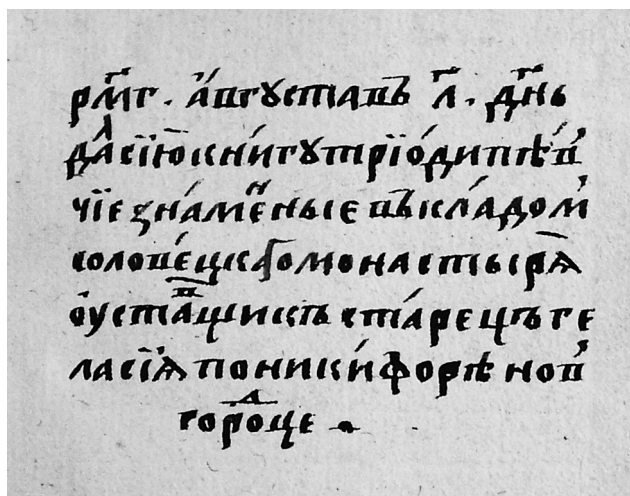 рм҃г . а҆́вгꙋста въ л҃ . дн҃ь
даⷧ сїю̀ кни́гꙋ трїѡ́ди пѣв̾
чїе зна́меⷩные въкла́дом̾
солове́цкаго монастырѧ̀
оу҆стаⷡщикъ ста́рецъ ге
ласїѧ поники́форѣ нов̾
гороⷣце